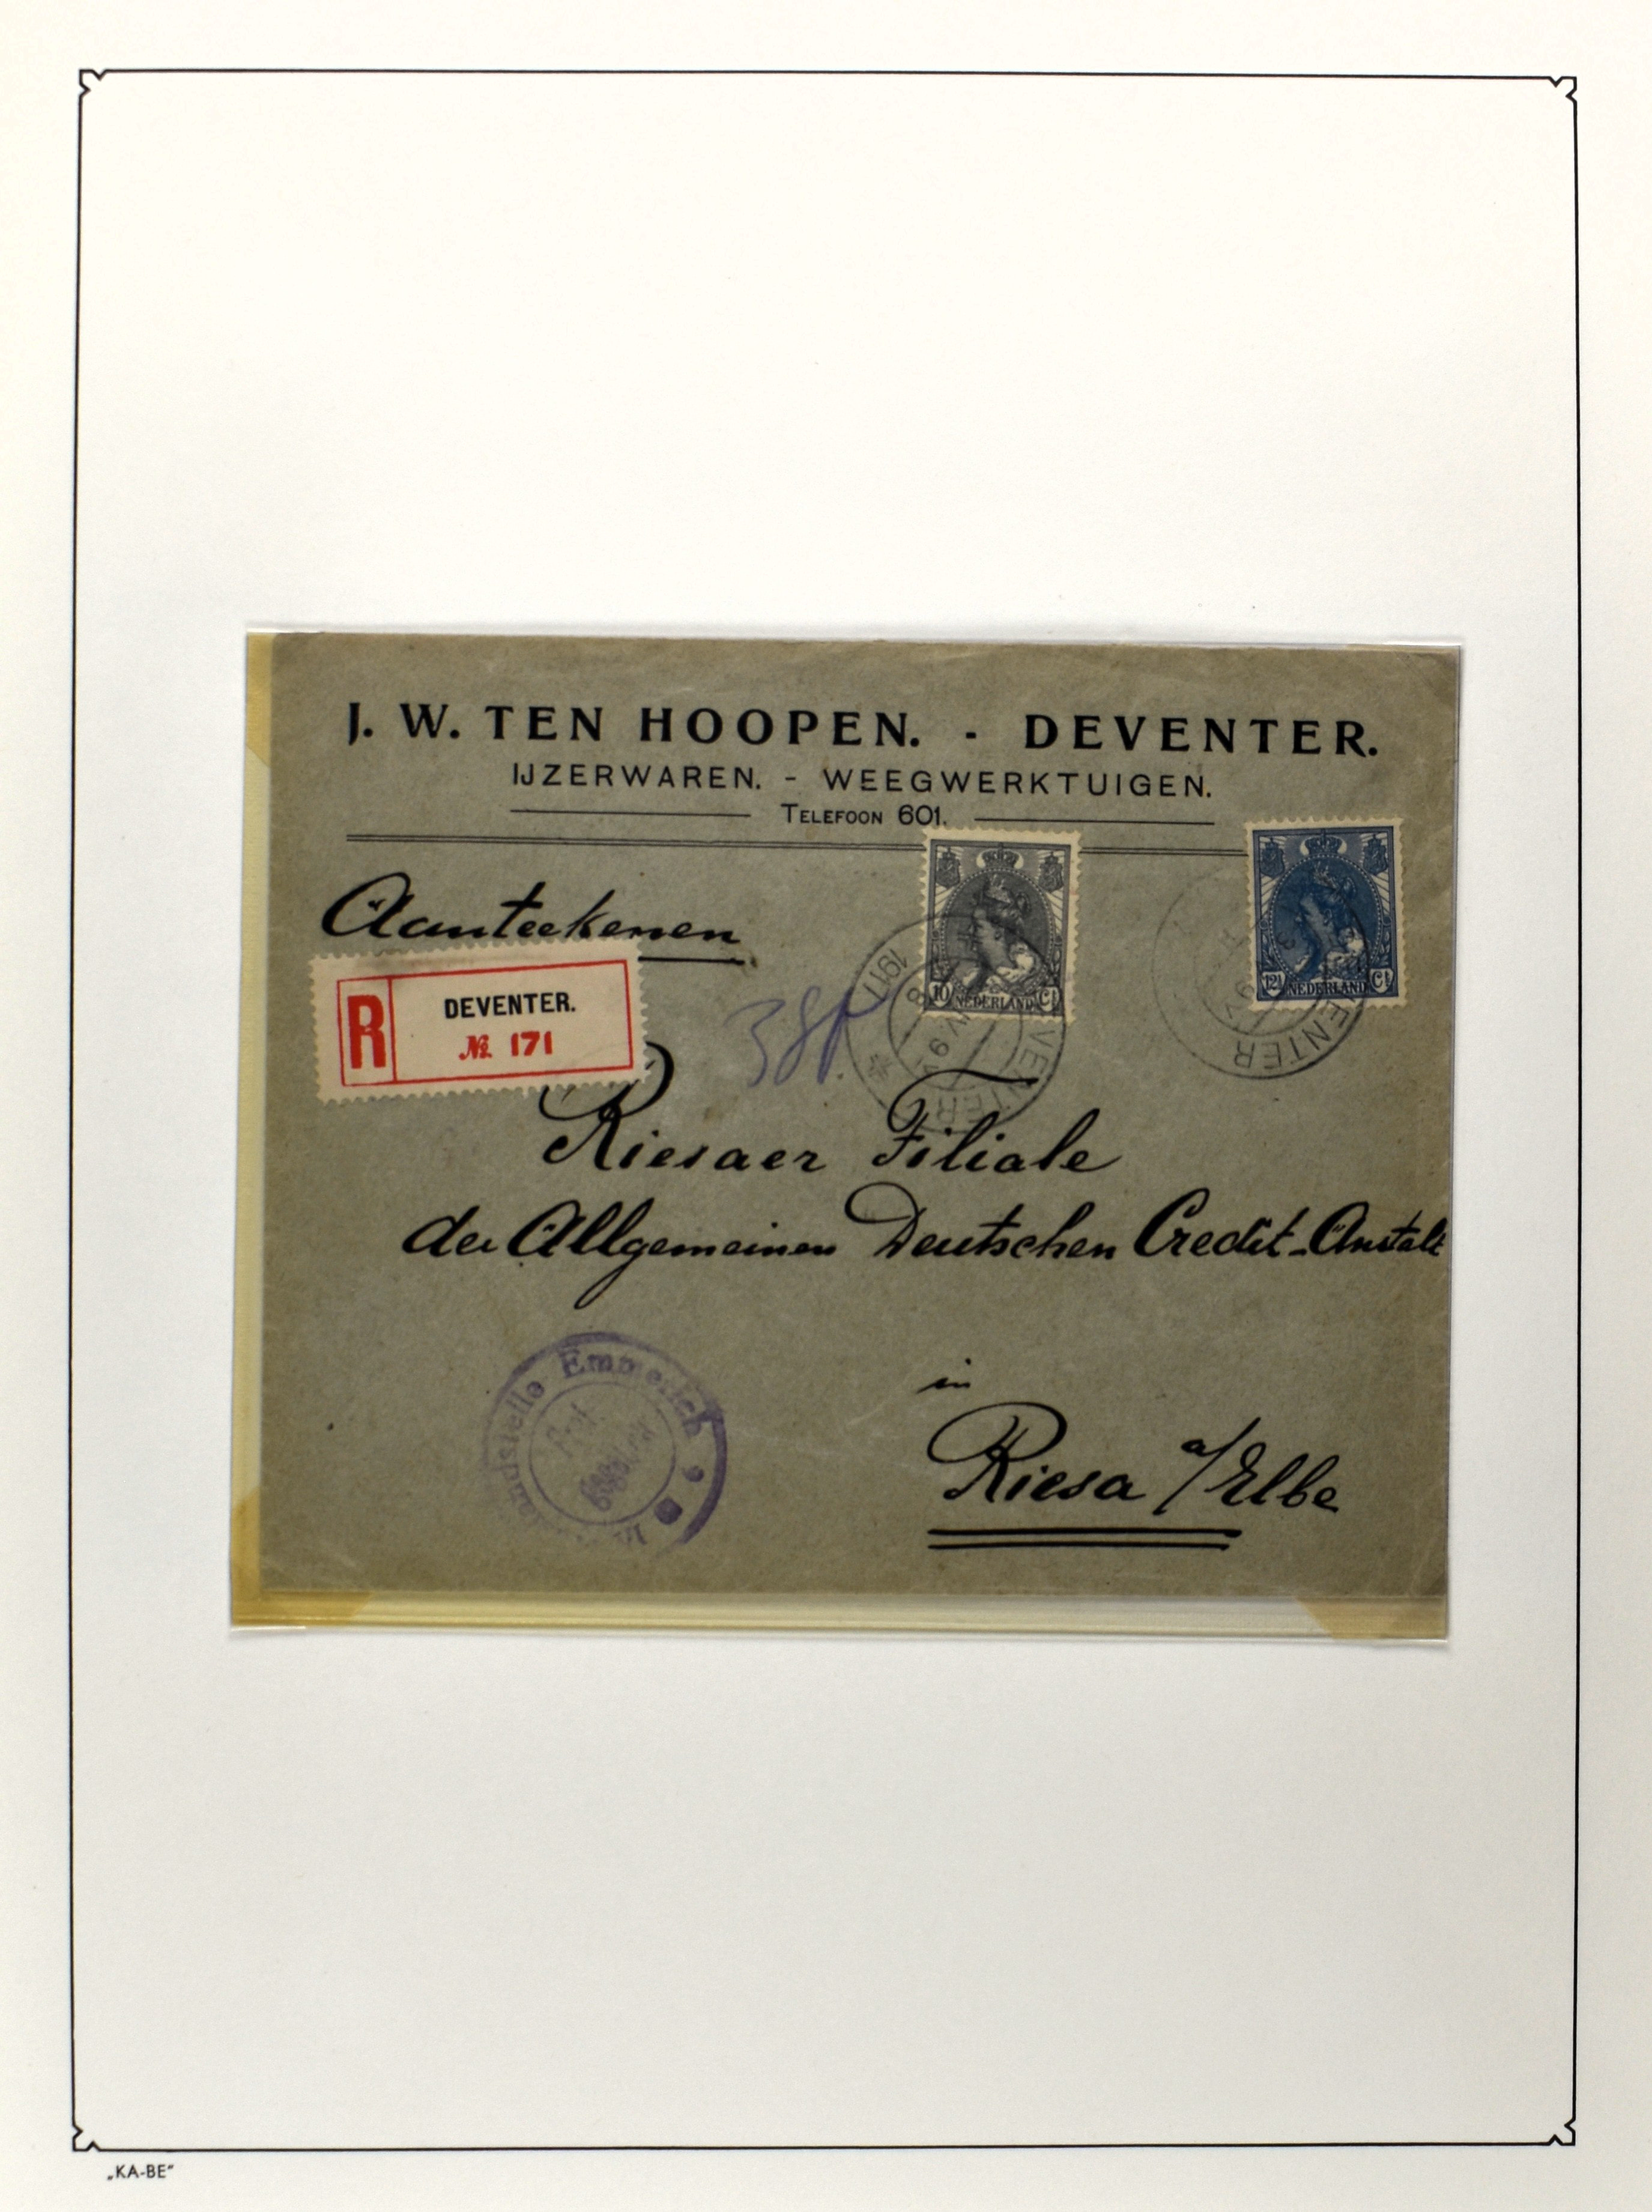 J. W. TEN HOOPEN. - DEVENTER.
IJZERWAREN. - WEEGWERKTUIGEN.
TELEFOON 601.
Aanteekenen
R
DEVENTER.
№ 171
10 NEDERLAND Ct
12½ NEDERLAND Ct
1917
VENTER
VENTER
38
Riesaer Filiale
der Allgemeinen Deutschen Credit-Anstalt
in
Riesa a/Elbe
Emmerich
„KA-BE“